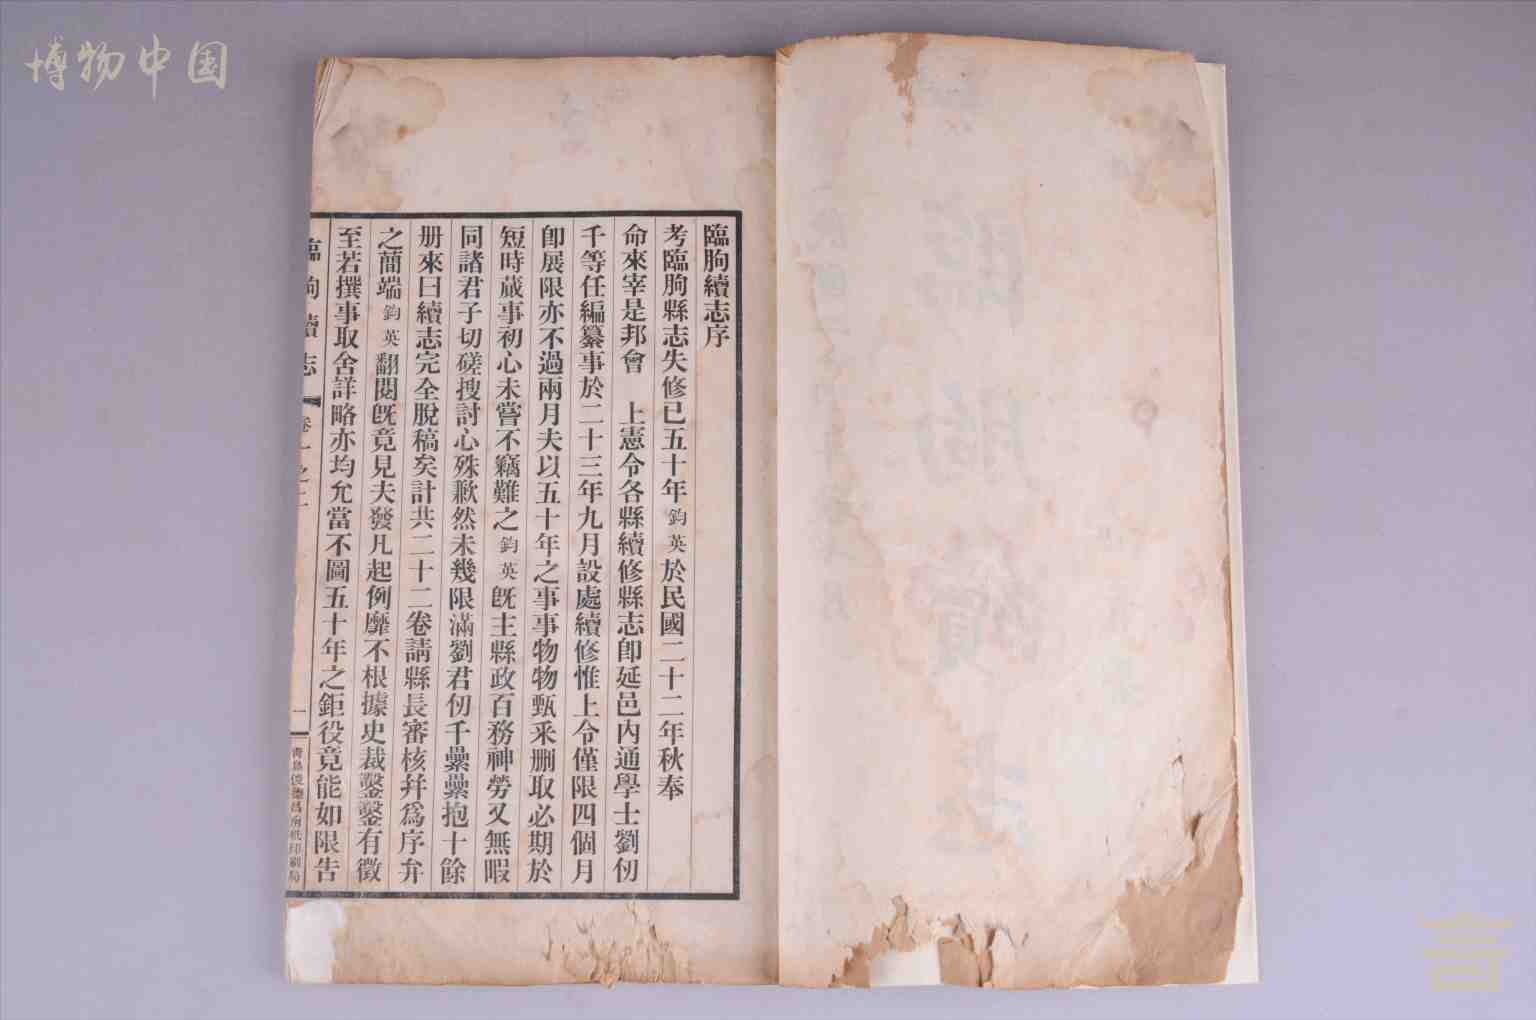 博物中国
臨朐續志序
考臨朐縣志失修已五十年鈞英於民國二十二年秋奉
命來宰是邦會　上憲令各縣續修縣志卽延邑內通學士劉仞
千等任編纂事於二十三年九月設處續修惟上令僅限四個月
卽展限亦不過兩月夫以五十年之事事物物甄釆删取必期於
短時蕆事初心未嘗不竊難之鈞英旣主縣政百務神勞又無暇
同諸君子切磋搜討心殊歉然未幾限滿劉君仞千纍纍抱十餘
册來曰續志完全脫稿矣計共二十二卷請縣長審核幷爲序弁
之蕳端鈞英翻閱旣竟見夫發凡起例靡不根據史裁鑿鑿有徵
至若撰事取舍詳略亦均允當不圖五十年之鉅役竟能如限告
臨朐續志
卷一之二
一
青島俊德昌南紙印刷局